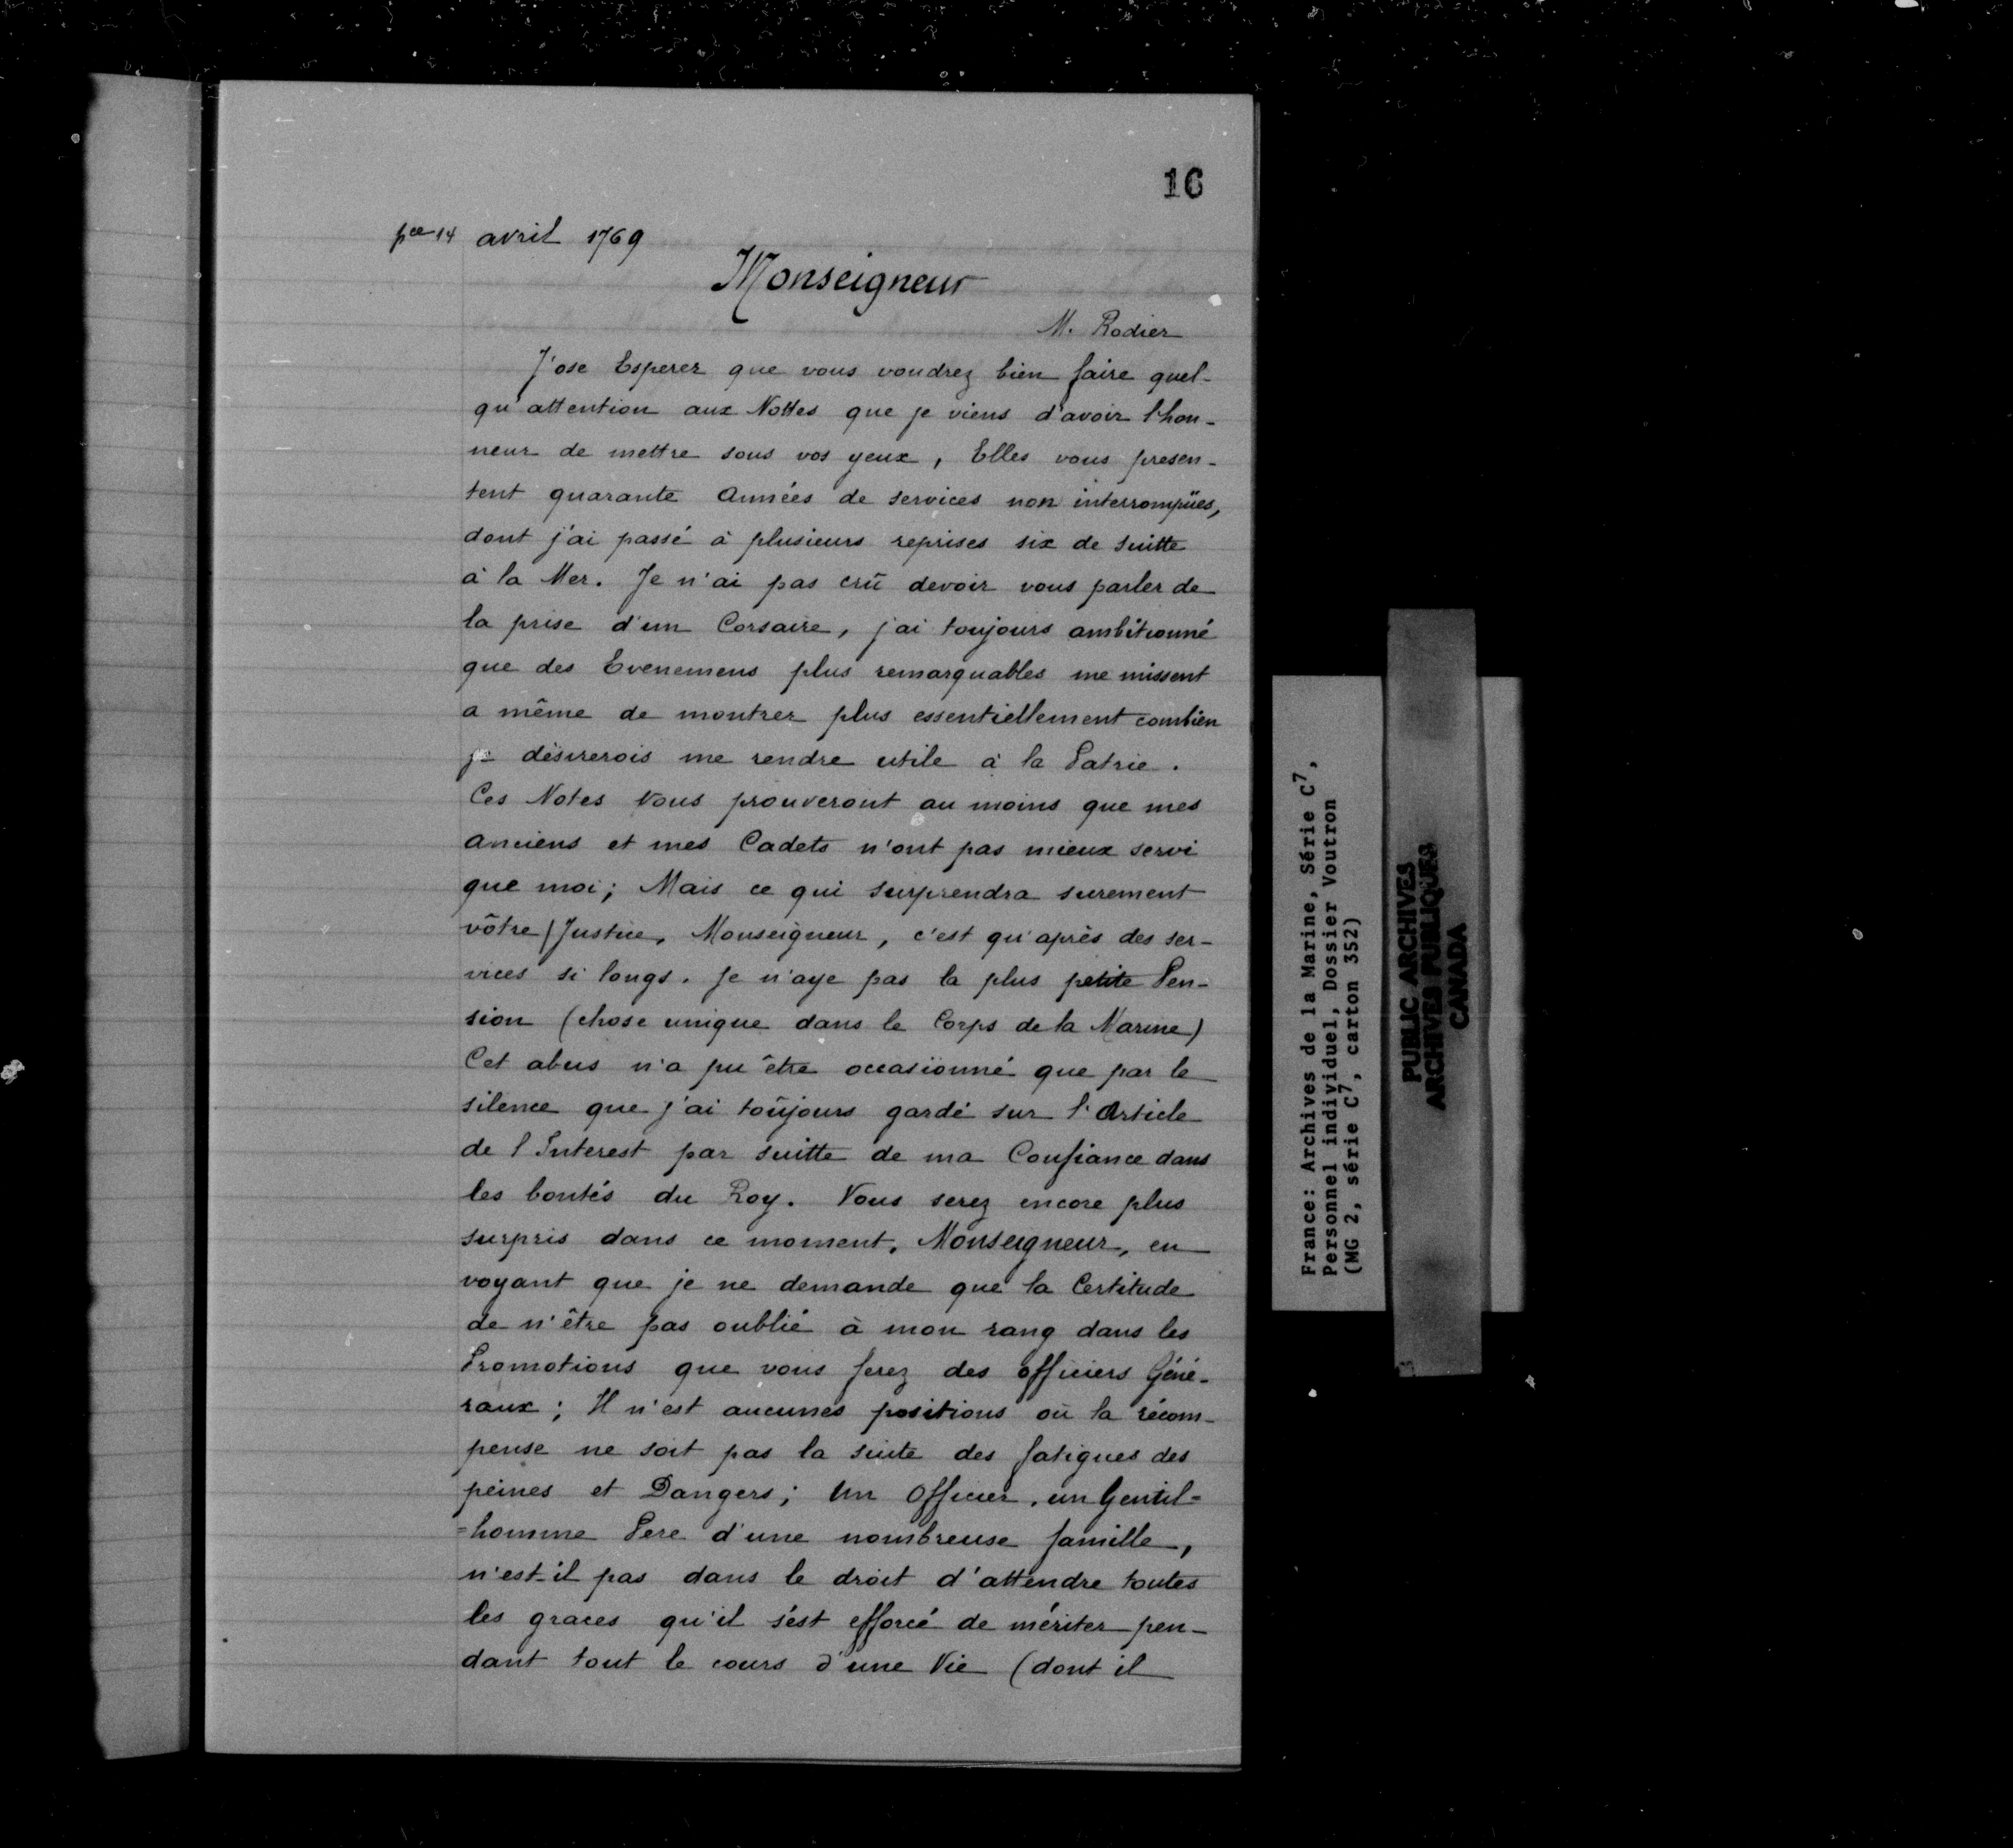 16
pce 14 avril 1769
Monseigneur
M. Rodier
J'ose Esperer que vous voudrez bien faire quel-
qu'attention aux Nottes que je viens d'avoir l'hon-
neur de mettre sous vos yeux, Elles vous presen-
tent quarante Années de services non interrompües,
dont j'ai passé à plusieurs reprises six de suitte
à la Mer. Je n'ai pas crû devoir vous parler de
la prise d'un Corsaire, j'ai toujours ambitionné
que des Evenemens plus remarquables me missent
a même de montrer plus essentiellement combien
je désirerois me rendre utile à la Patrie.
Ces Notes Vous prouveront au moins que mes
anciens et mes Cadets n'ont pas mieux servi
que moi; Mais ce qui surprendra surement
vôtre Justice, Monseigneur, c'est qu'après des ser-
vices si longs. Je n'aye pas la plus petite Pen-
sion (chose unique dans le Corps de la Marine)
Cet abus n'a pu être occasionné que par le
silence que j'ai toûjours gardé sur l'Article
de l'Interest par suitte de ma Confiance dans
les bontés du Roy. Vous serez encore plus
surpris dans ce moment, Monseigneur, en
voyant que je ne demande que la Certitude
de n'être pas oublié à mon rang dans les
Promotions que vous ferez des officiers Géné-
raux; Il n'est aucunes positions où la récom-
pense ne soit pas la suite des fatigues des
peines et Dangers; Un Officier, un Gentil=
=homme Pere d'une nombreuse famille,
n'est-il pas dans le droit d'attendre toutes
les graces qu'il s'est efforcé de mériter pen-
dant tout le cours d'une Vie (dont il
France: Archives de la Marine, Série C7,
Personnel individuel, Dossier Voutron
(MG 2, série C7, carton 352)
PUBLIC ARCHIVES
ARCHIVES PUBLIQUES
CANADA